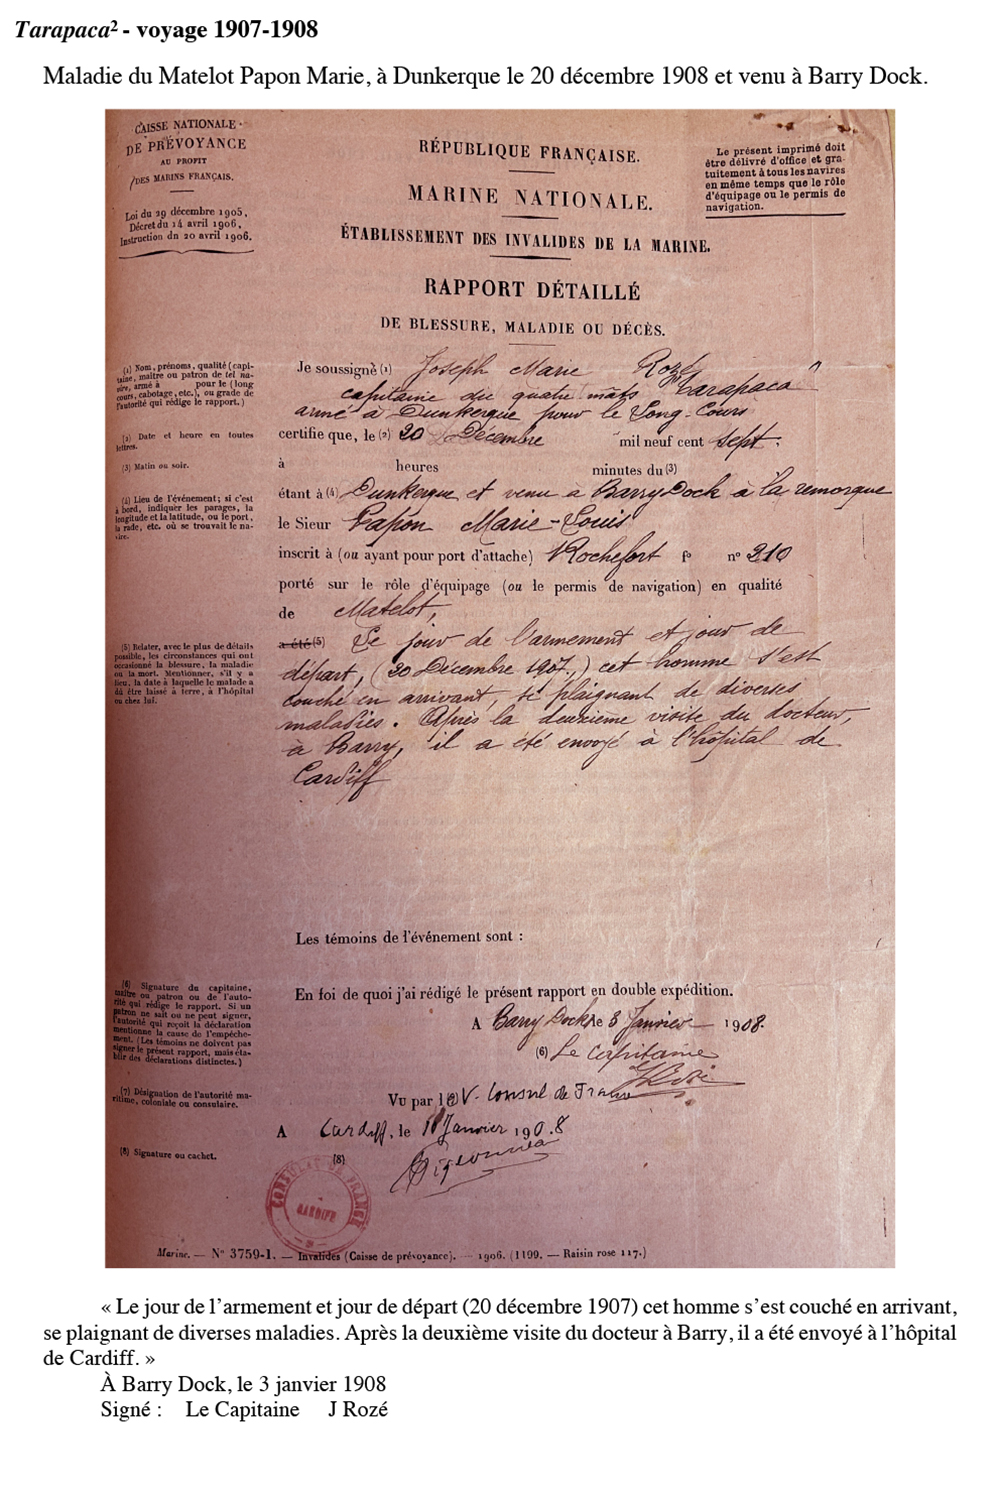 Tarapaca² - voyage 1907-1908
Maladie du Matelot Papon Marie, à Dunkerque le 20 décembre 1908 et venu à Barry Dock.
CAISSE NATIONALE
DE PRÉVOYANCE
AU PROFIT
DES MARINS FRANÇAIS.
Loi du 29 décembre 1905,
Décret du 14 avril 1906,
Instruction du 20 avril 1906.
RÉPUBLIQUE FRANÇAISE.
MARINE NATIONALE.
ÉTABLISSEMENT DES INVALIDES DE LA MARINE.
Le présent imprimé doit
être délivré d'office et gra-
tuitement à tous les navires
en même temps que le rôle
d'équipage ou le permis de
navigation.
RAPPORT DÉTAILLÉ
DE BLESSURE, MALADIE OU DÉCÈS.
(1) Nom, prénoms, qualité (capi-
taine, maître ou patron de tel na-
vire, armé à pour le (long
cours, cabotage, etc.), ou grade de
l'autorité qui rédige le rapport.)
(2) Date et heure en toutes
lettres.
(3) Matin ou soir.
(4) Lieu de l'événement; si c'est
à bord, indiquer les parages, la
longitude et la latitude, ou le port,
la rade, etc. où se trouvait le na-
vire.
(5) Relater, avec le plus de détails
possible, les circonstances qui ont
occasionné la blessure, la maladie
ou la mort. Mentionner, s'il y a
lieu, la date à laquelle le malade a
dû être laissé à terre, à l'hôpital
ou chez lui.
Je soussigné (1) Joseph Marie Rozé
capitaine du quatre mâts "Tarapaca"
armé à Dunkerque pour le Long-Cours
certifie que, le (2) 20 Décembre mil neuf cent sept,
à heures minutes du (3)
étant à (4) Dunkerque et venu à Barry Dock à la remorque
le Sieur Papon Marie-Louis
inscrit à (ou ayant pour port d'attache) Rochefort fo nº 210
porté sur le rôle d'équipage (ou le permis de navigation) en qualité
de Matelot,
a été (5) Le jour de l'armement et jour de
départ, (20 Décembre 1907,) cet homme s'est
couché en arrivant, se plaignant de diverses
maladies. Après la deuxième visite du docteur,
à Barry, il a été envoyé à l'hôpital de
Cardiff
Les témoins de l'événement sont :
(6) Signature du capitaine,
maître ou patron ou de l'auto-
rité qui rédige le rapport. Si un
patron ne sait ou ne peut signer,
l'autorité qui reçoit la déclaration
mentionne la cause de l'empêche-
ment. (Les témoins ne doivent pas
signer le présent rapport, mais éta-
blir des déclarations distinctes.)
(7) Désignation de l'autorité ma-
ritime, coloniale ou consulaire.
(8) Signature ou cachet.
En foi de quoi j'ai rédigé le présent rapport en double expédition.
A Barry Dock le 3 Janvier 1908.
(6) Le Capitaine
JRozé
Vu par l V. Consul de France
A Cardiff, le 11 Janvier 1908
(8)
CONSULAT DE FRANCE
CARDIFF
Marine. — Nº 3759-1. — Invalides (Caisse de prévoyance). — 1906. (1199. — Raisin rose 117.)
« Le jour de l'armement et jour de départ (20 décembre 1907) cet homme s'est couché en arrivant,
se plaignant de diverses maladies. Après la deuxième visite du docteur à Barry, il a été envoyé à l'hôpital
de Cardiff. »
À Barry Dock, le 3 janvier 1908
Signé : Le Capitaine J Rozé